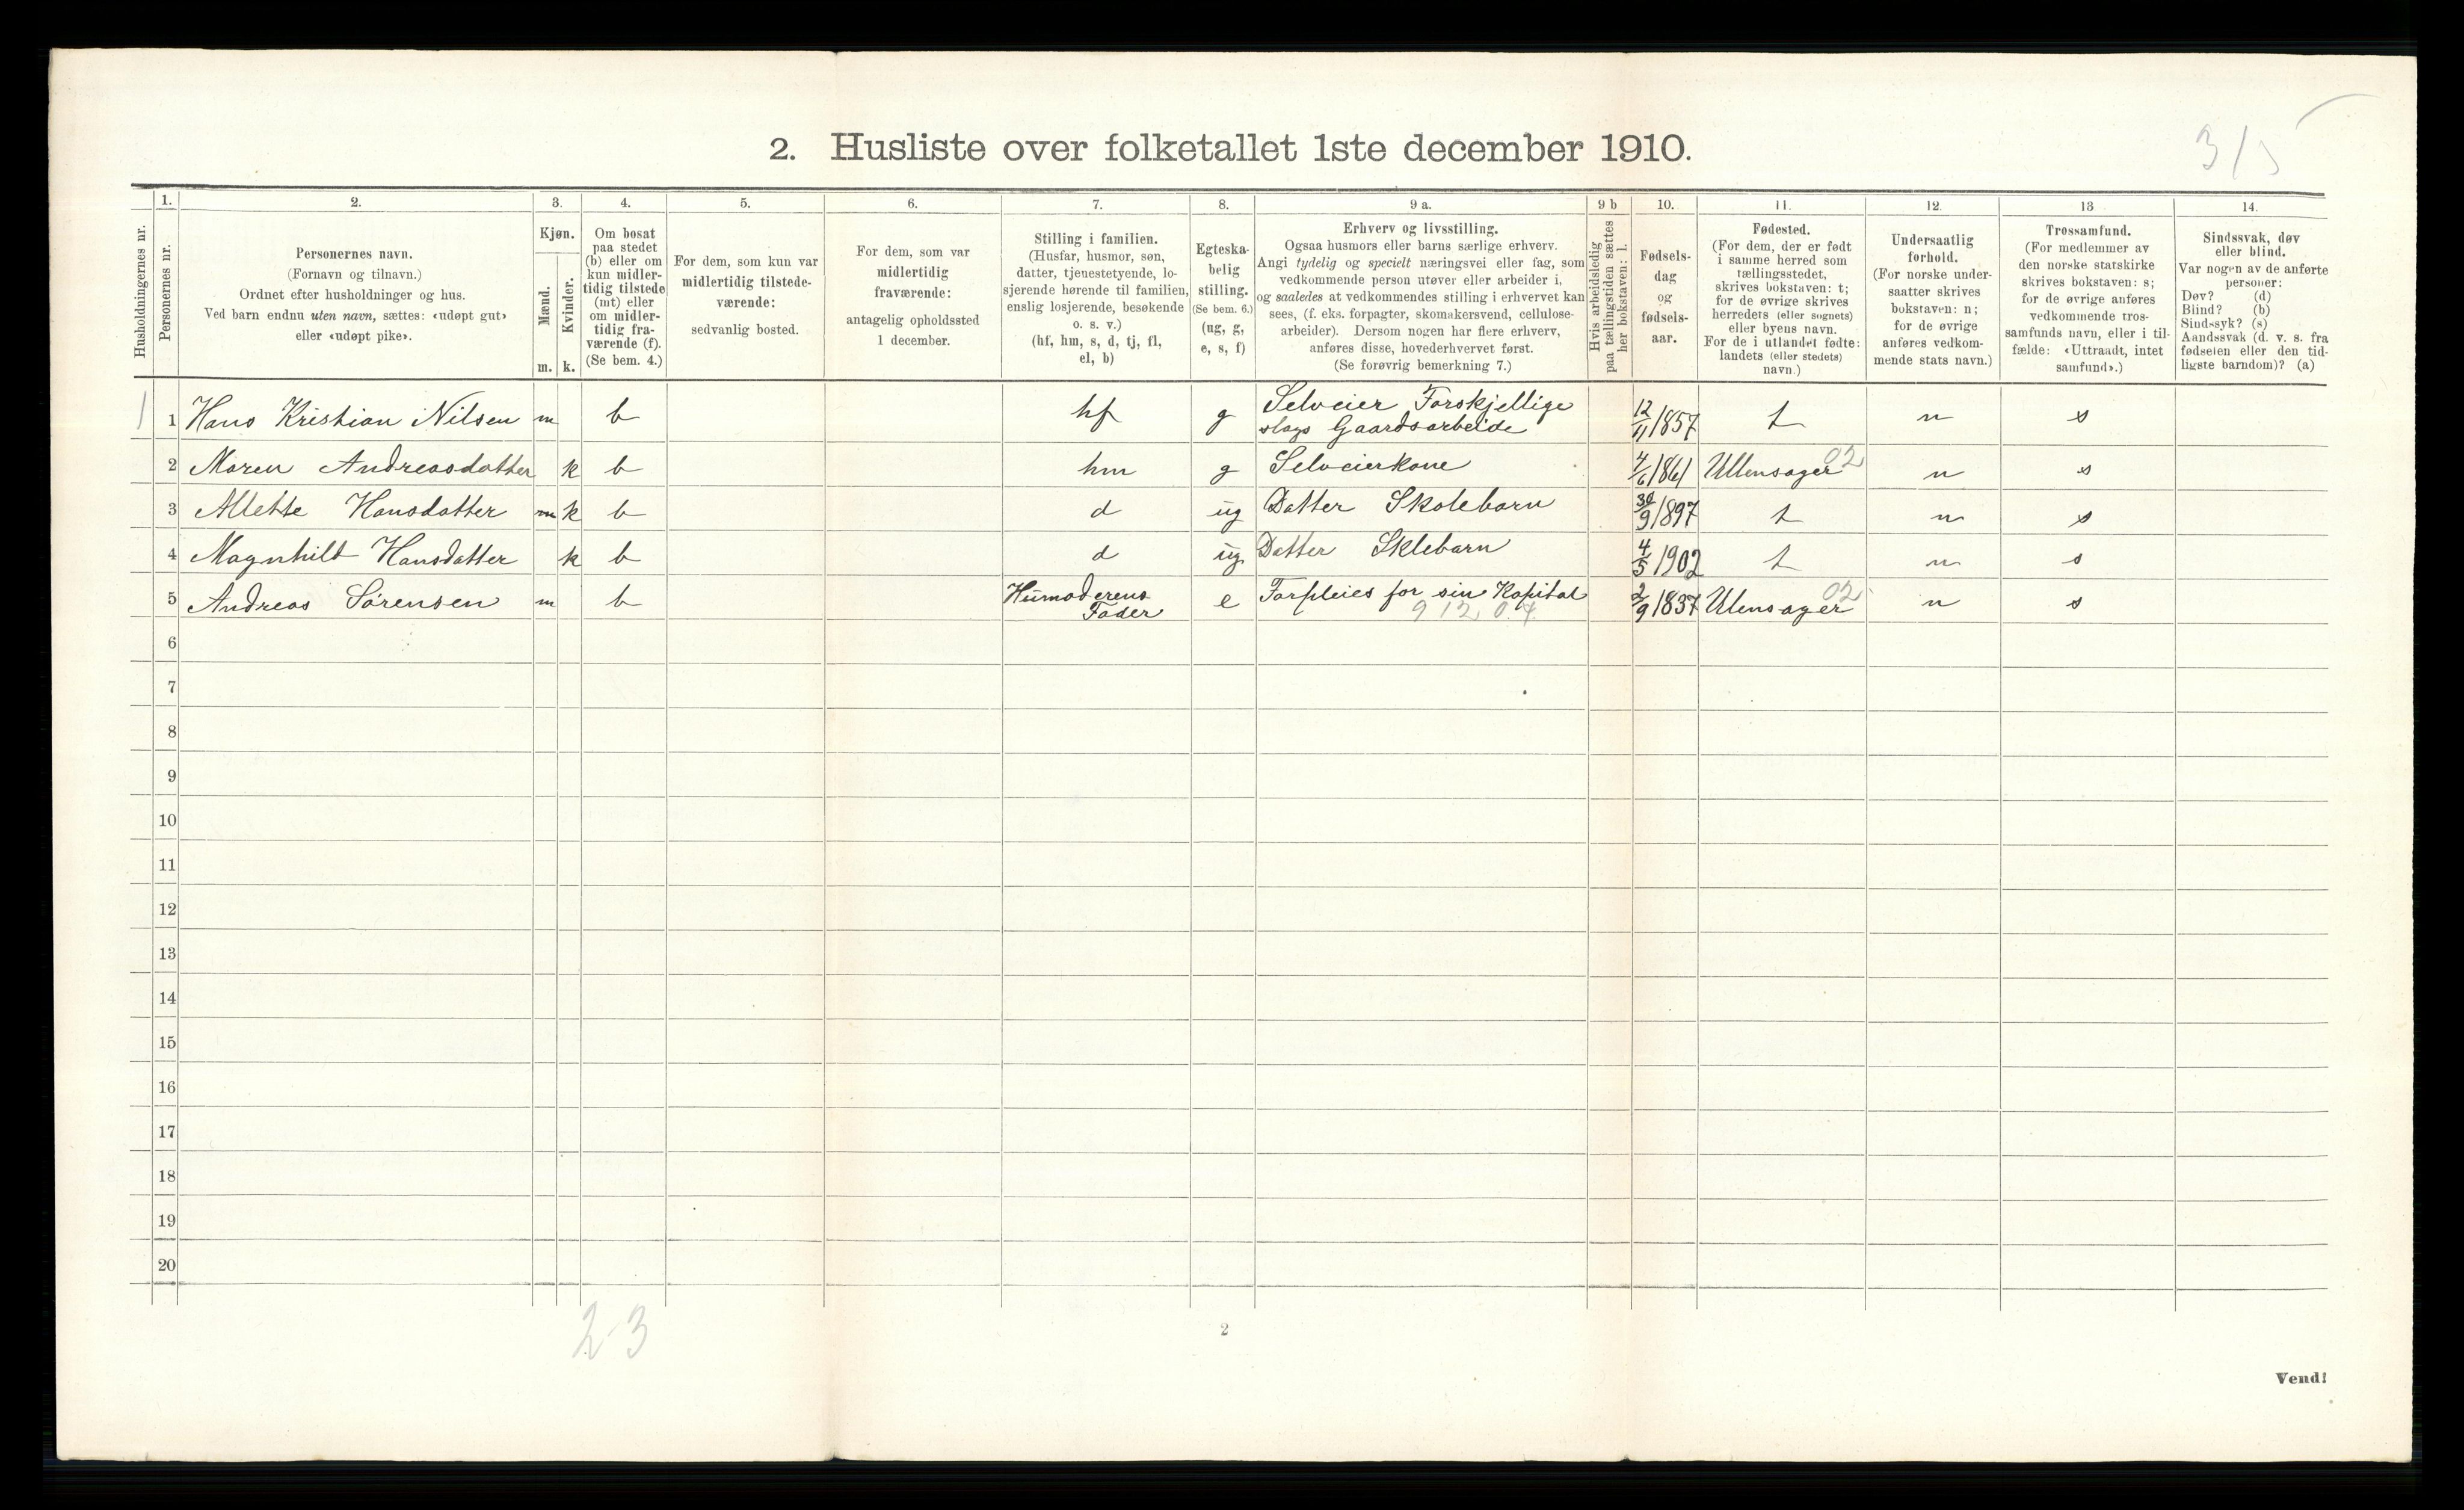 2. Husliste over folketallet 1ste december 1910.
3/5
Husholdningernes nr.
1.
Personernes nr.
2.
Personernes navn.
(Fornavn og tilnavn.)
Ordnet efter husholdninger og hus.
Ved barn endnu uten navn, sættes: «udøpt gut»
eller «udøpt pike».
3.
Kjøn.
Mænd.
Kvinder.
m. k.
4.
Om bosat
paa stedet
(b) eller om
kun midler-
tidig tilstede
(mt) eller
om midler-
tidig fra-
værende (f).
(Se bem. 4.)
5.
For dem, som kun var
midlertidig tilstede-
værende:
sedvanlig bosted.
6.
For dem, som var
midlertidig
fraværende:
antagelig opholdssted
1 december.
7.
Stilling i familien.
(Husfar, husmor, søn,
datter, tjenestetyende, lo-
sjerende hørende til familien,
enslig losjerende, besøkende
o. s. v.)
(hf, hm, s, d, tj, fl,
el, b)
8.
Egteska-
belig
stilling.
(Se bem. 6.)
(ug, g,
e, s, f)
9 a.
Erhverv og livsstilling.
Ogsaa husmors eller barns særlige erhverv.
Angi tydelig og specielt næringsvei eller fag, som
vedkommende person utøver eller arbeider i,
og saaledes at vedkommendes stilling i erhvervet kan
sees, (f. eks. forpagter, skomakersvend, cellulose-
arbeider). Dersom nogen har flere erhverv,
anføres disse, hovederhvervet først.
(Se forøvrig bemerkning 7.)
9 b
Hvis arbeidsledig
paa tællingstiden sættes
her bokstaven: l.
10.
Fødsels-
dag
og
fødsels-
aar.
11.
Fødested.
(For dem, der er født
i samme herred som
tællingsstedet,
skrives bokstaven: t;
for de øvrige skrives
herredets (eller sognets)
eller byens navn.
For de i utlandet fødte:
landets (eller stedets)
navn.)
12.
Undersaatlig
forhold.
(For norske under-
saatter skrives
bokstaven: n;
for de øvrige
anføres vedkom-
mende stats navn.)
13
Trossamfund.
(For medlemmer av
den norske statskirke
skrives bokstaven: s;
for de øvrige anføres
vedkommende tros-
samfunds navn, eller i til-
fælde: «Uttraadt, intet
samfund».)
14.
Sindssvak, døv
eller blind.
Var nogen av de anførte
personer:
Døv? (d)
Blind? (b)
Sindssyk? (s)
Aandssvak (d. v. s. fra
fødselen eller den tid-
ligste barndom)? (a)
1 1 Hans Kristian Nilsen m b hf g Selveier Forskjellige
slags Gaardsarbeide 12/11 1857 t n s
2 Maren Andreasdatter k b hm g Selveierkone 4/6 1861 Ullensager 02 n s
3 Allette Hansdatter m k b d ug Datter Skolebarn 30/9 1897 t n s
4 Magnhild Hansdatter k b d ug Datter Sklebarn 4/5 1902 t n s
5 Andreas Sørensen m b Humoderens
Fader e Forpleies for sin Kapital 2/9 1837 Ulensager 02 n s
9 12 0.4
6
7
8
9
10
11
12
13
14
15
16
17
18
19
20
2-3
2
Vend!